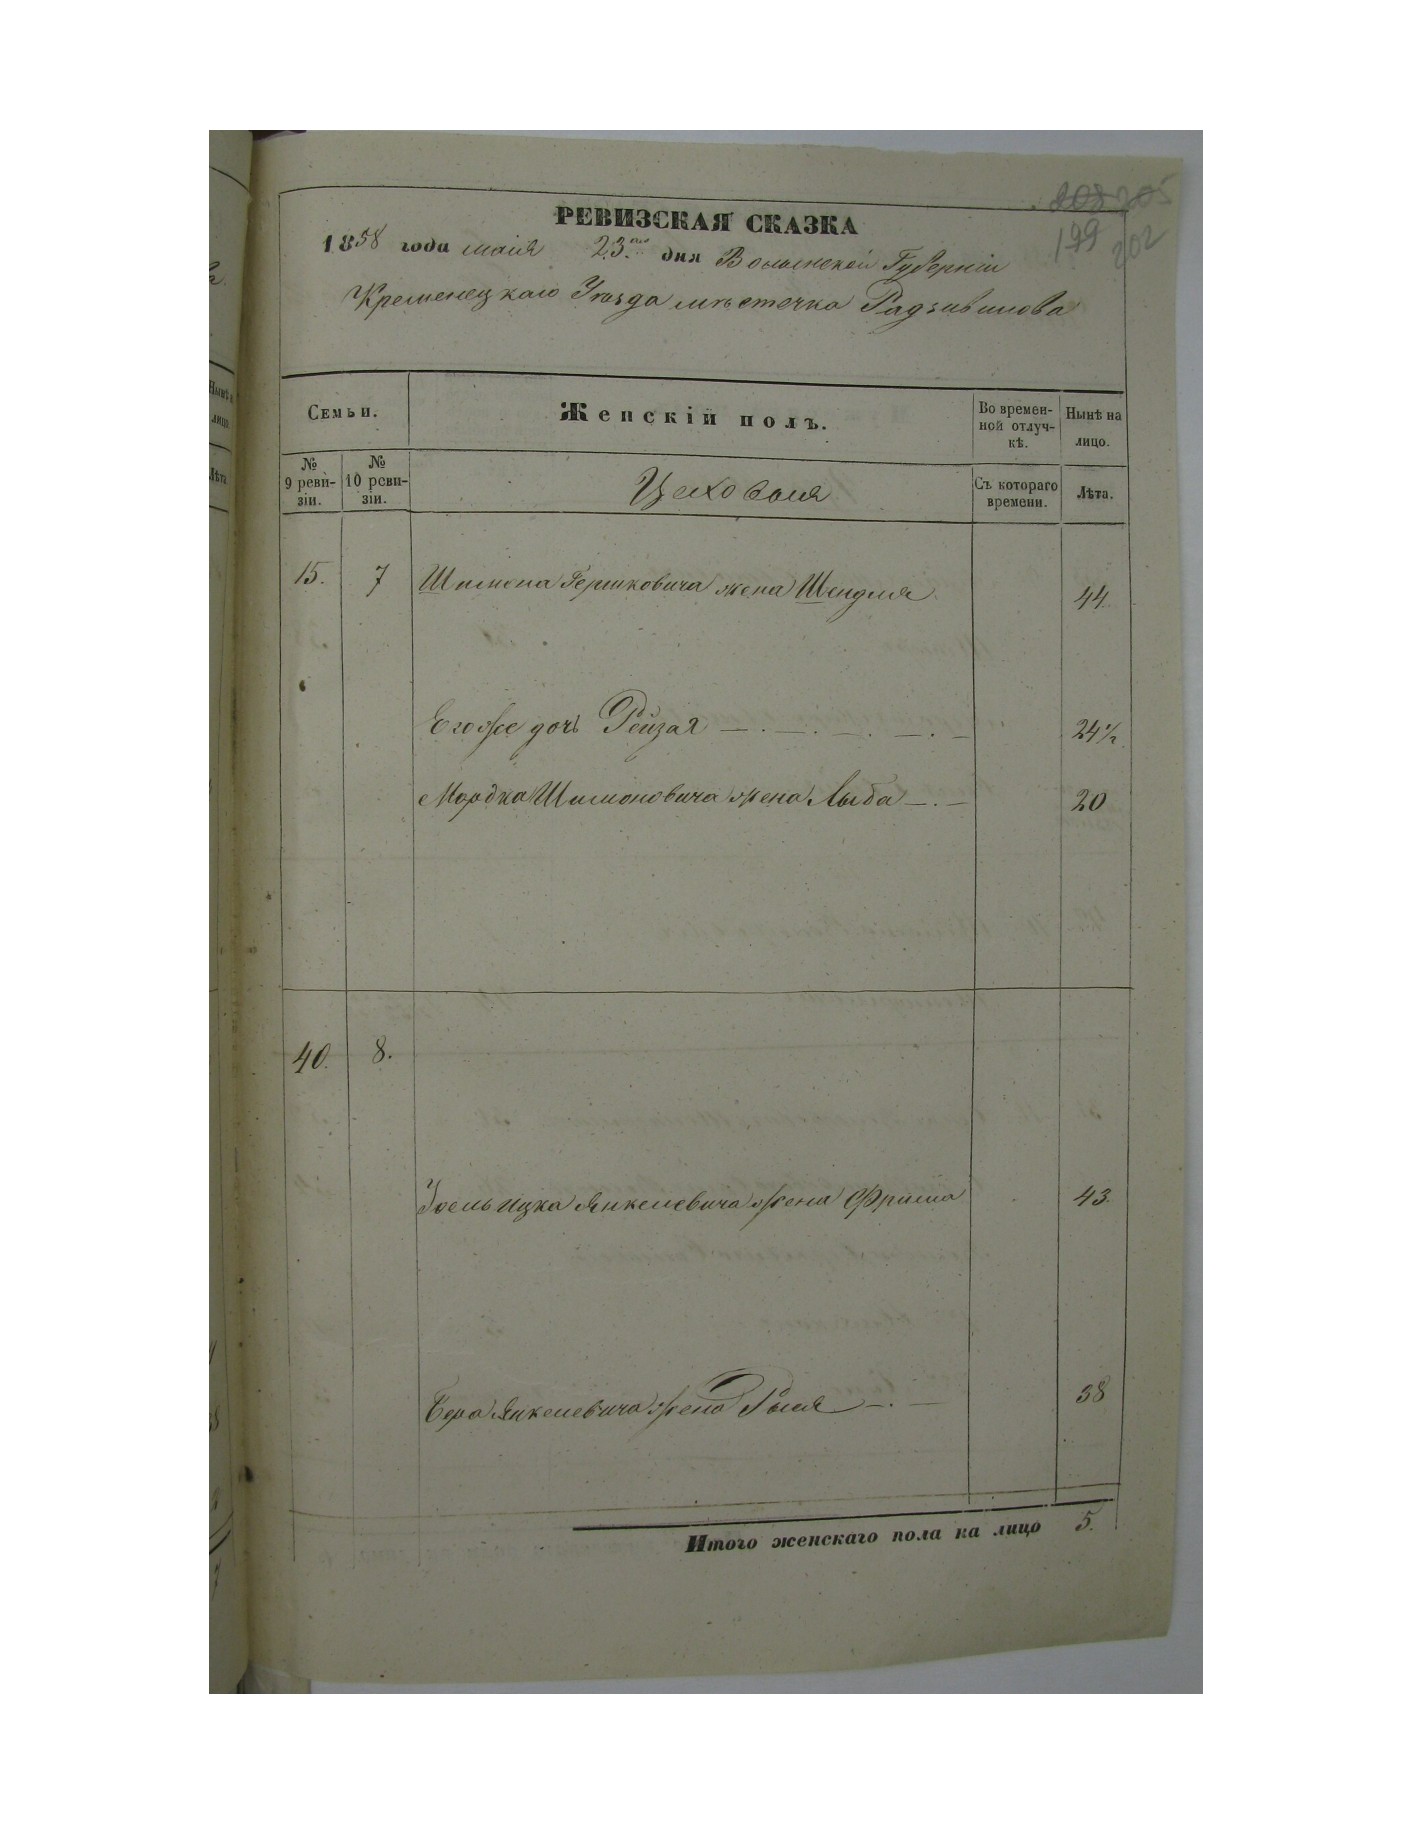 208 205
199 202
РЕВИЗСКАЯ СКАЗКА
1858 года маія 23.го дня Волынской Губерніи
Кременецкаго Уѣзда мѣстечка Радзивилова
Семьи.
Женскій полъ.
Во времен-
ной отлуч-
кѣ.
Нынѣ на
лицо.
№
9 реви-
зіи.
№
10 реви-
зіи.
Цеховыя
Съ котораго
времени.
Лѣта.
15. 7 Шимона Гершковича жена Шендля 44
Его же дочь Рейзая 24 1/2
Мордка Шимоновича жена Лыба 20
40. 8.
Іоель Ицка Янкелевича жена Фрима 43
Бера Янкелевича жена Рыля 38
Итого женскаго пола на лицо 5.